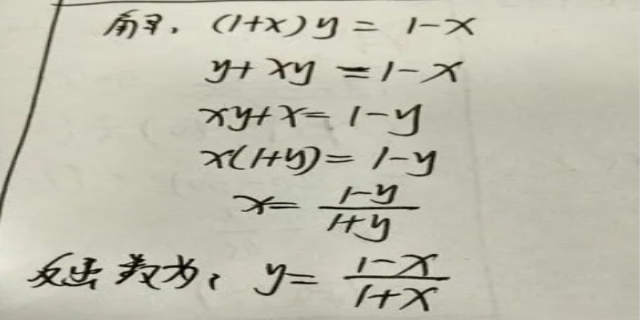 解, (1+x)y = 1-x
y+xy = 1-x
xy+x = 1-y
x(1+y) = 1-y
x = \frac{1-y}{1+y}
反函数为, y = \frac{1-x}{1+x}